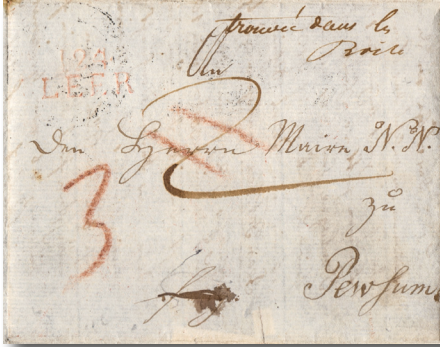 trouvé dans la
Boite
124
LEER
An
Den Herrn Maire N. N.
3
zu
Pewsum